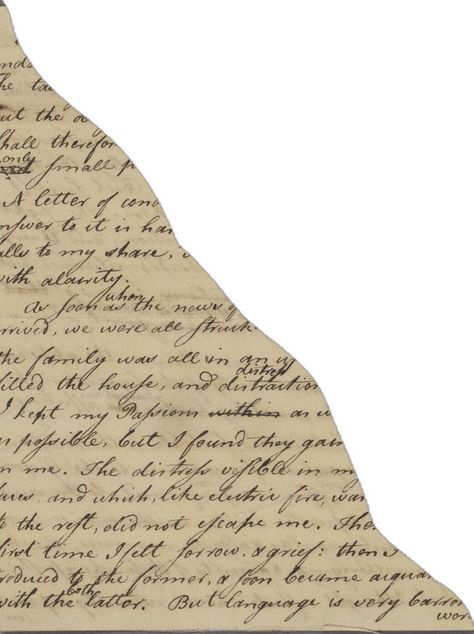 ndo
he ta
ut the
hall therefor
only
small p
A letter of con
nswer to it is han
alls to my share,
ith alairity.
when
As soon as the news
rrived, we were all struck
the family was all in an
distress
filled the house, and distraction
I kept my Passions within as
as possible, but I found they gain
n me. The distress visible in my
faces and which, like electric fire, wa
to the rest, did not escape me. The
first time I felt sorrow, & grief: then
roduced to the former, & soon became acqua
both
with the latter. But language is very barren
wor